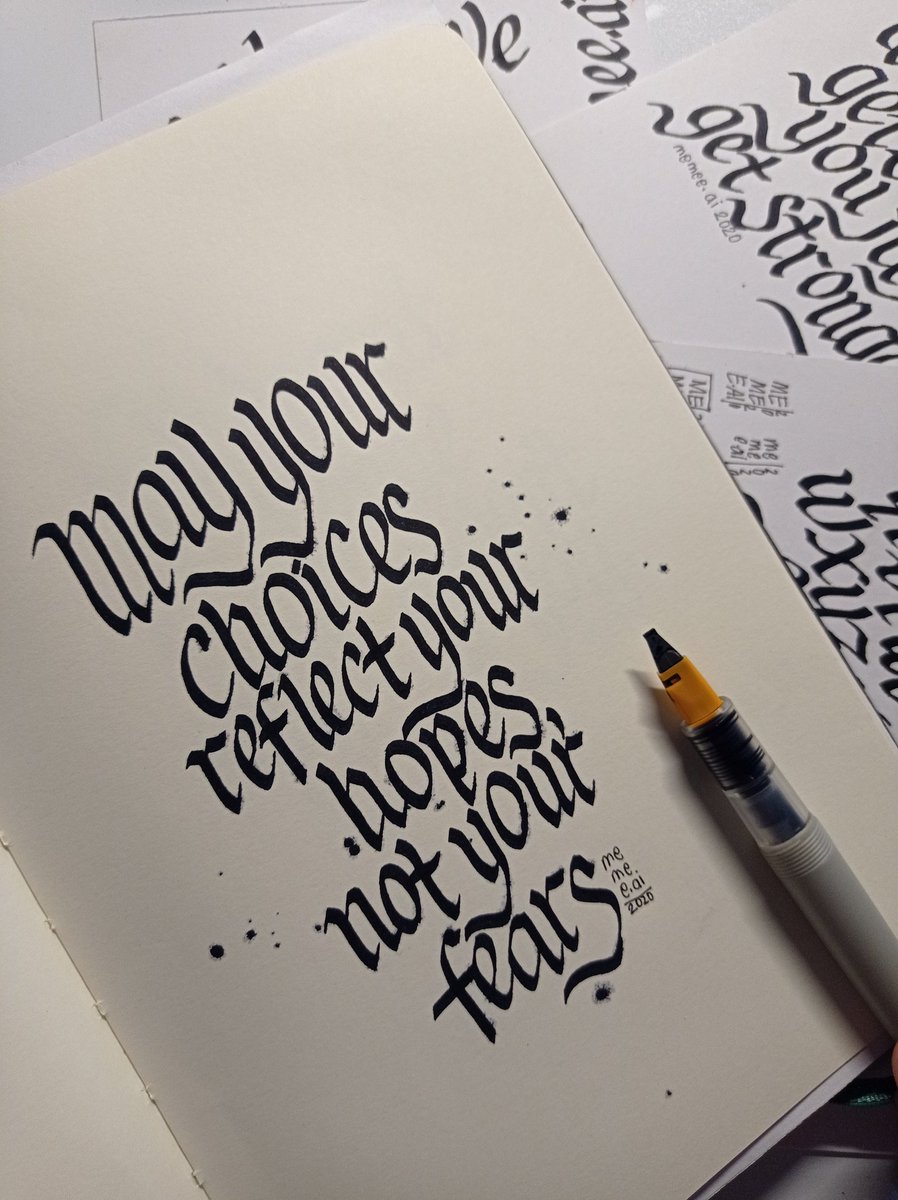 may your
choices
reflect your
hopes,
not your
fears
me
me.
e.ai
2020
get
you
get strong
memee.ai 2020
ME
ME
E.AI
me
me
e.ai
wxyz